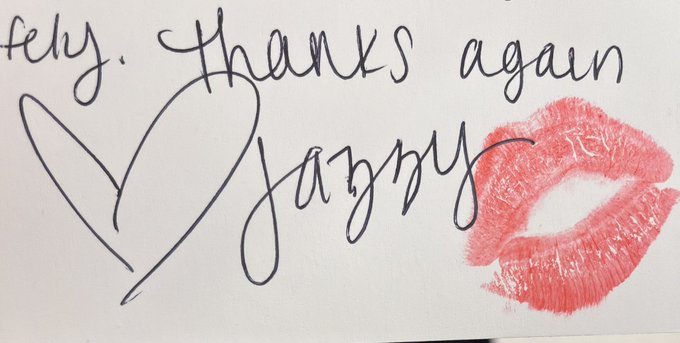 fely. Thanks again
Jazzy